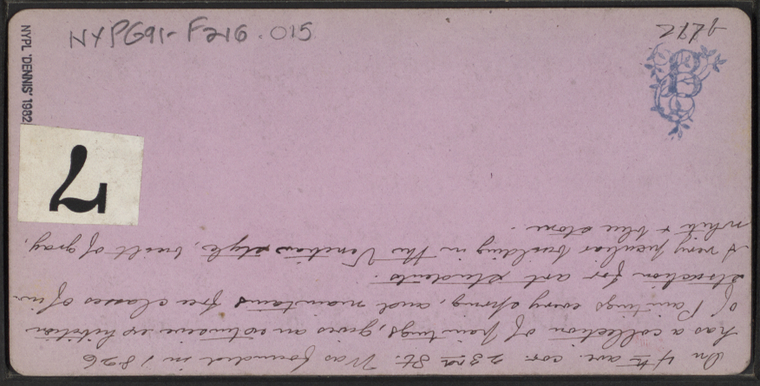 NYPG91-F216.015
NYPL 'DENNIS' 1982
7
On 4th ave. cor. 23rd St. Was founded in 1826
has a collection of paintings, gives an extensive exhibition
of Paintings every spring, and maintains free classes of in-
struction for art students.
A very peculiar building in the Venetian style, built of gray,
white & blue stone.